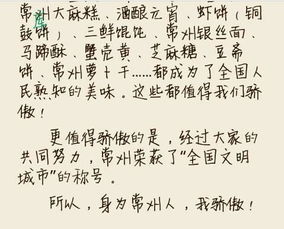 常州大麻糕、酒酿元宵、虾饼（铜
鼓饼）、三鲜馄饨、常州银丝面、
马蹄酥、蟹壳黄、芝麻糖、豆斋
饼、常州萝卜干……都成为了全国人
民熟知的美味。这些都值得我们骄
傲！
更值得骄傲的是，经过大家的
共同努力，常州荣获了“全国文明
城市”的称号。
所以，身为常州人，我骄傲！